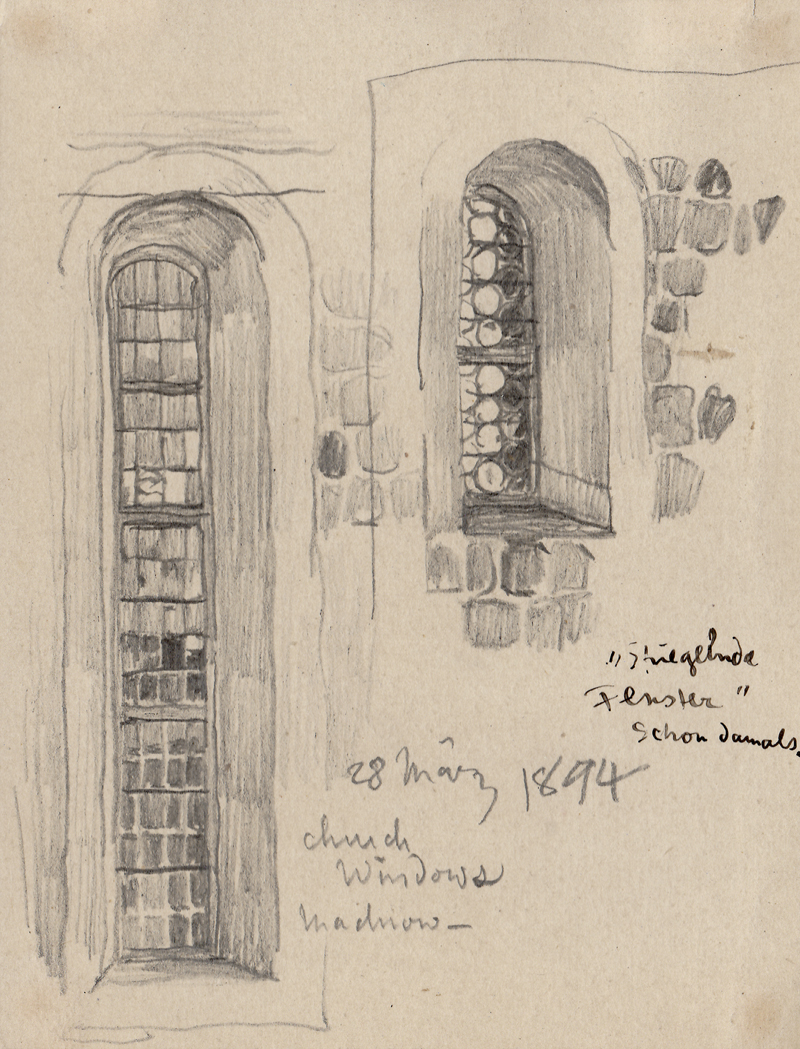 „Spiegelnde
Fenster"
Schon damals.
28 März 1894
church
Windows
Machnow –